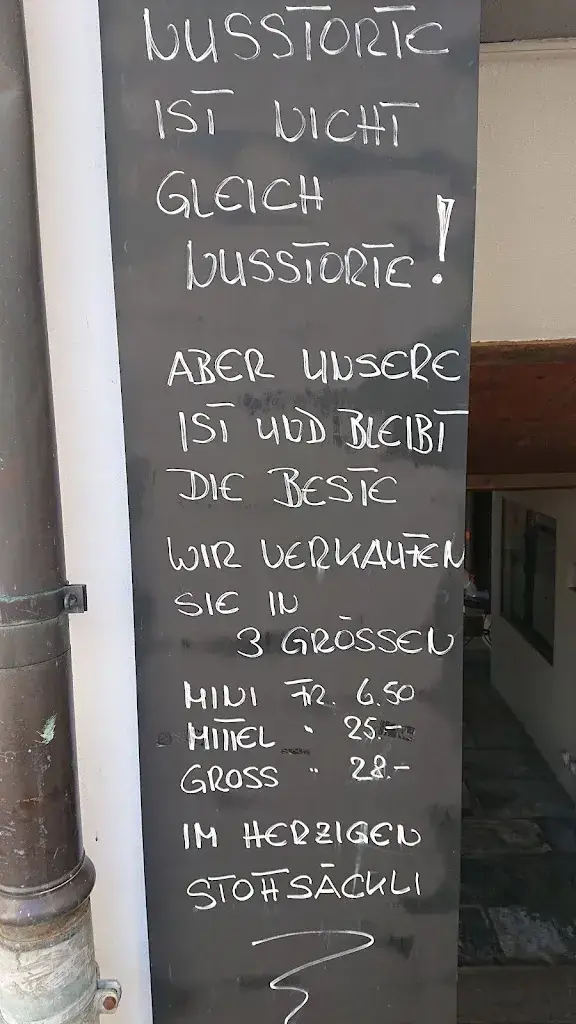 NUSSTORTE
IST NICHT
GLEICH
NUSSTORTE!
ABER UNSERE
IST UND BLEIBT
DIE BESTE
WIR VERKAUFEN
SIE IN
3 GRÖSSEN
MINI FR. 6.50
MITTEL " 25.–
GROSS " 28.–
IM HERZIGEN
STOFFSÄCKLI